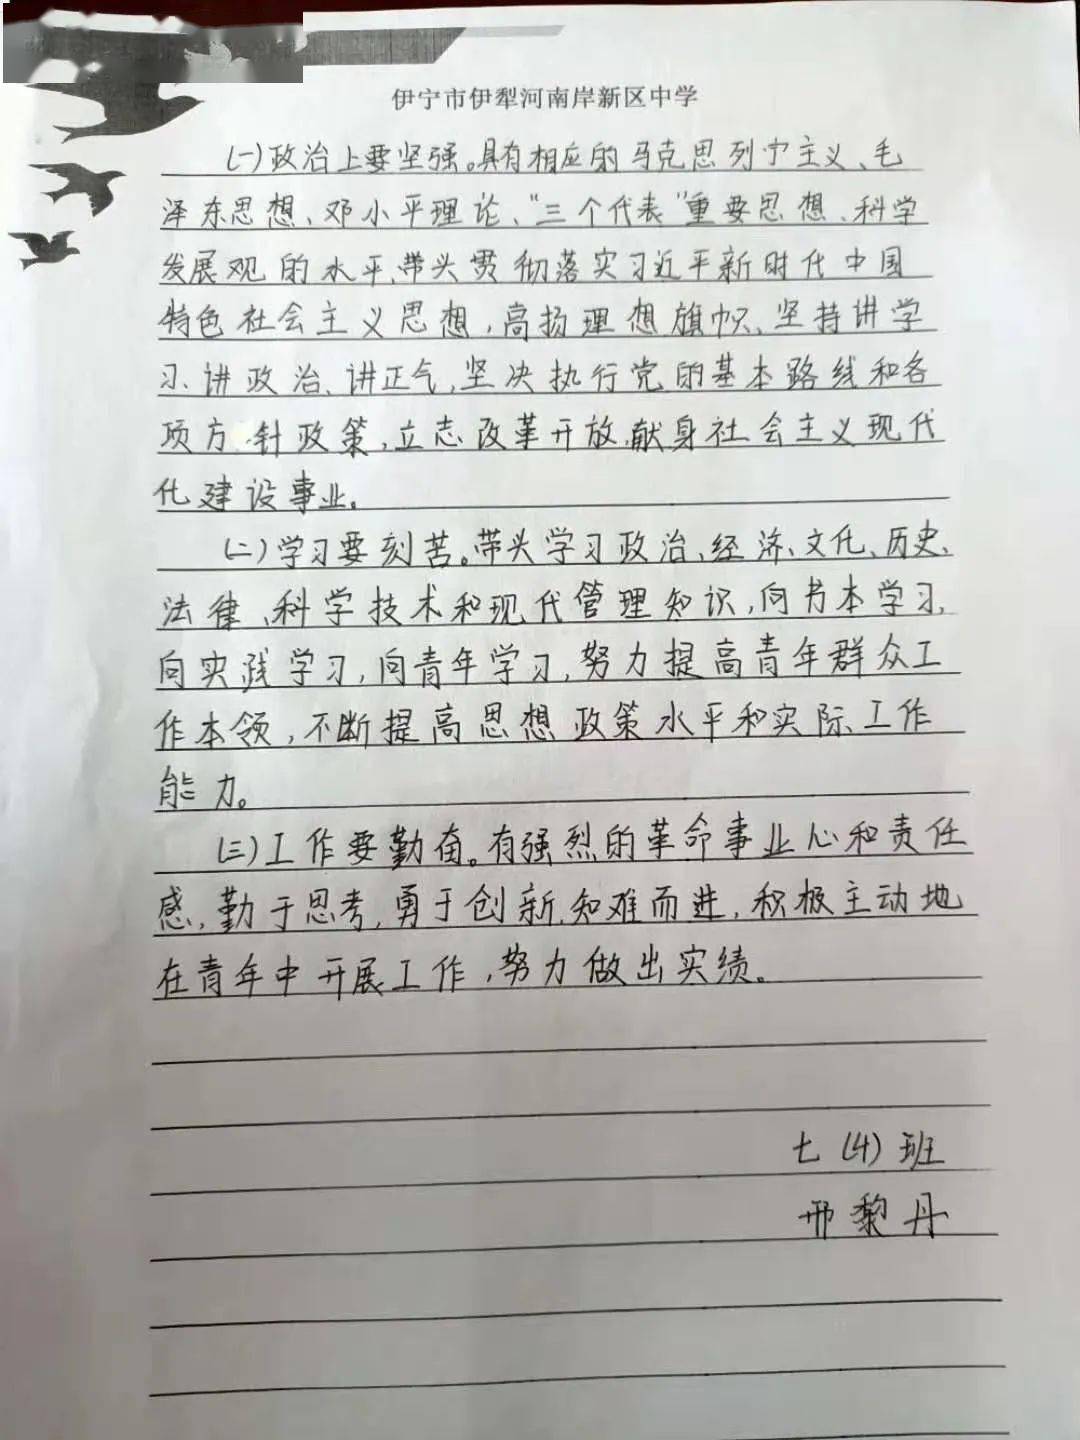 伊宁市伊犁河南岸新区中学
(一)政治上要坚强。具有相应的马克思列宁主义、毛
泽东思想、邓小平理论、"三个代表"重要思想、科学
发展观的水平,带头贯彻落实习近平新时代中国
特色社会主义思想,高扬理想旗帜、坚持讲学
习、讲政治、讲正气,坚决执行党的基本路线和各
项方针政策,立志改革开放,献身社会主义现代
化建设事业。
(二)学习要刻苦。带头学习政治、经济、文化、历史、
法律、科学技术和现代管理知识,向书本学习,
向实践学习,向青年学习,努力提高青年群众工
作本领,不断提高思想政策水平和实际工作
能力。
(三)工作要勤奋。有强烈的革命事业心和责任
感,勤于思考,勇于创新,知难而进,积极主动地
在青年中开展工作,努力做出实绩。
七(4)班
邢黎丹